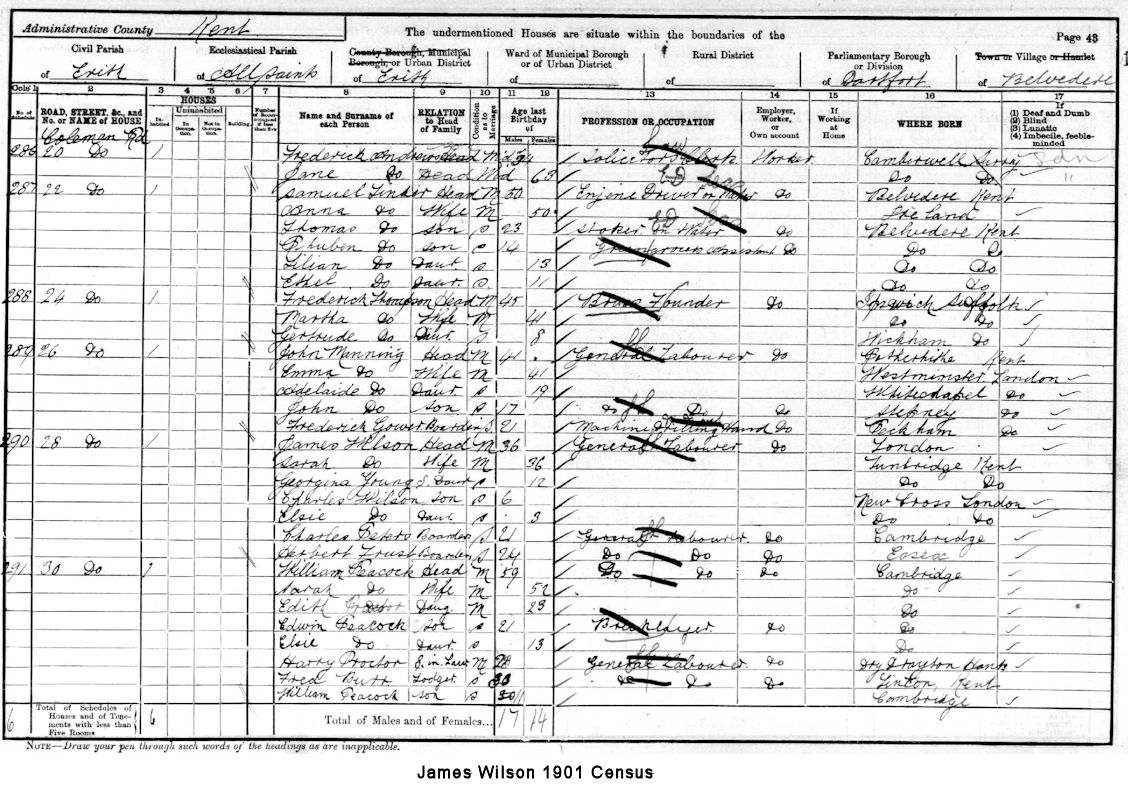 Administrative County Kent
The undermentioned Houses are situate within the boundaries of the
Page 43
Civil Parish
of Erith
Ecclesiastical Parish
of All Saints
County Borough, Municipal Borough, or Urban District
of Erith
Ward of Municipal Borough or of Urban District
of
Rural District
of
Parliamentary Borough or Division
of Dartford
Town or Village or Hamlet
of Belvedere
Cols 1 2 3 4 5 6 7 8 9 10 11 12 13 14 15 16 17
No. of Schedule
ROAD, STREET, &c., and No. or NAME of HOUSE
HOUSES
Inhabited
Uninhabited
In Occupation.
Not in Occupation.
Building.
Number of Rooms occupied if less than five
Name and Surname of each Person
RELATION to Head of Family
Condition as to Marriage
Age last Birthday of
Males Females
PROFESSION OR OCCUPATION
Employer, Worker, or Own account
If Working at Home
WHERE BORN
If
(1) Deaf and Dumb
(2) Blind
(3) Lunatic
(4) Imbecile, feeble-minded
Coleman Rd
286 20 Do 1 Frederick Andrews Head Solicitors Clerk Worker Camberwell Surrey
Jane Do Head Wid 63 Do Do
287 22 Do 1 Samuel Head M 50 Engine Driver on Water Do Belvedere Kent
Anna Do Wife M 50 Ireland
Thomas Do Son S 23 Stoker on Water Do Belvedere Kent
Rhuben Do Son S 14 Assistant Do Do Do
Lilian Do Daur S 13 Do Do
Ethel Do Daur S 11 Do Do
288 24 Do 1 Frederick Thompson Head M 45 Brass Founder Do Ipswich Suffolk
Martha Do Wife M 41 Do Do
Gertrude Do Daur S 8 Wickham Do
289 26 Do 1 John Manning Head M 41 General Labourer Do Rotherhithe Kent
Emma Do Wife M 41 Westminster London
Adelaide Do Daur S 19 Whitechapel Do
John Do Son S 17 Do Do Do Stepney Do
Frederick Gower Boarder S 21 Machine Drilling Hand Do Peckham Do
290 28 Do 1 James Wilson Head M 36 General Labourer Do London
Sarah Do Wife M 36 Tunbridge Kent
Georgina Young S. Daur S 12 Do Do
Charles Wilson Son S 6 New Cross London
Elsie Do Daur S 3 Do Do
Charles Peters Boarder S 21 General Labourer Do Cambridge
Herbert Trust Boarder S 24 Do Do Do Essex
291 30 Do 1 William Peacock Head M 59 Do Do Do Cambridge
Sarah Do Wife M 52 Do
Edith Proctor Daug M 23 Do
Edwin Peacock Son S 21 Bricklayer Do Do
Elsie Do Daur S 13 Do
Harry Proctor S. in Law M 28 General Labourer Do Dry Drayton
Fred Burr Lodger S 33 Do Do Do Linton, Kent
William Peacock Son S 30 Cambridge
6 Total of Schedules of Houses and of Tenements with less than Five Rooms 6 Total of Males and of Females... 17 14
NOTE—Draw your pen through such words of the headings as are inapplicable.
James Wilson 1901 Census